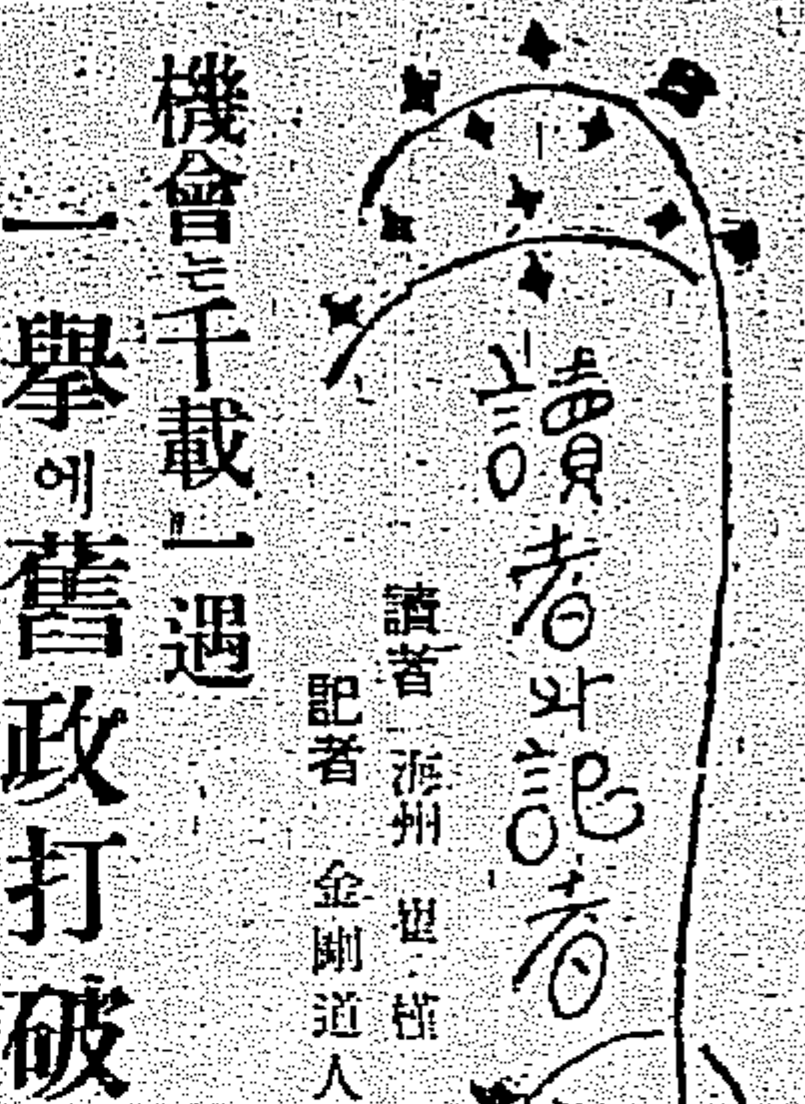 讀者와記者
讀者 派州
記者 金剛道人
機會는千載一遇
一擧에舊政打破